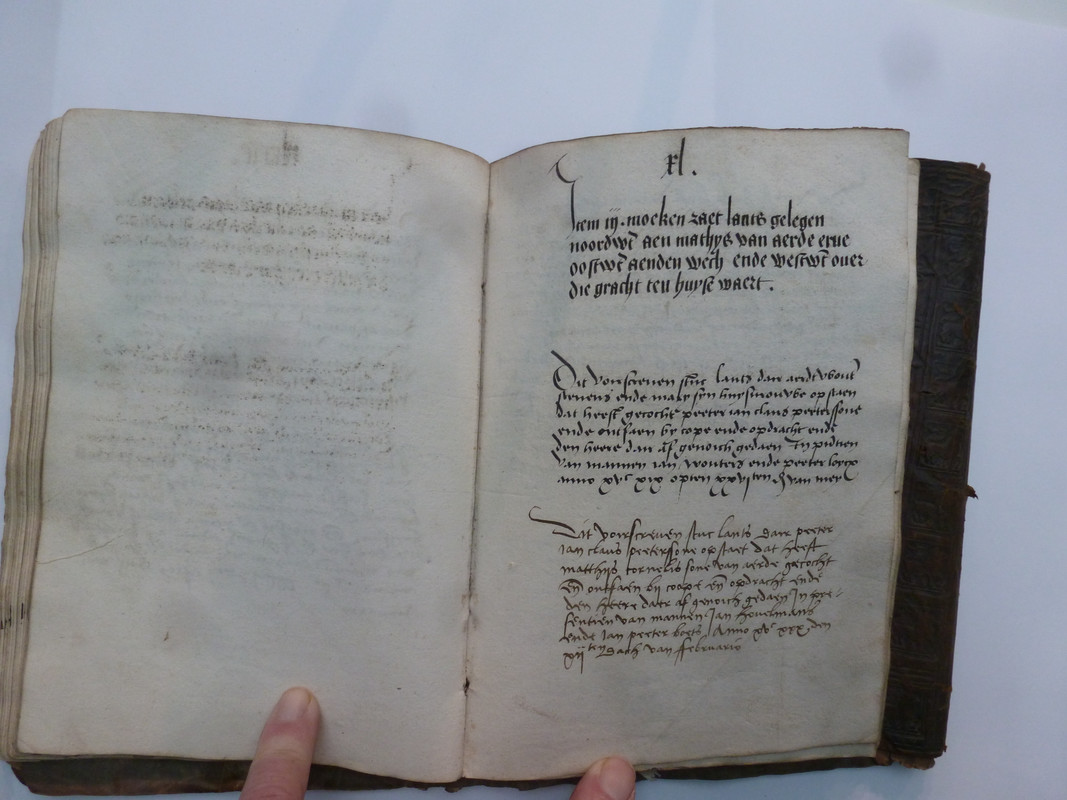 xl.
Item iij. moeken zaet lants gelegen
noordwt aen mathys van aerde erue
oostwt aenden wech ende westwt ouer
die gracht ten huyse waert.
Dit vorscreuen stuc lants dair aerdt
steuens ende mary syn huysvrouwe op staen
dat heeft gecocht peeter ian claus peeterssone
ende ontfaen by cope ende opdracht ende
den heere dair af genoich gedaen In
van mannen ian wouters ende peeter
anno xvc xix opten xxvjsten van
Dit voirscreuen stuc lants dair peeter
ian claus peeterssone op staet dat heeft
matthijs cornelis sone van aerde gecocht
en ontfaen bij coope en opdracht ende
den heere daer af genoich gedaen In pre-
sentien van mannen Jan houelmans
ende Jan peeter boets Anno xvc xxx den
xijten dach van februario